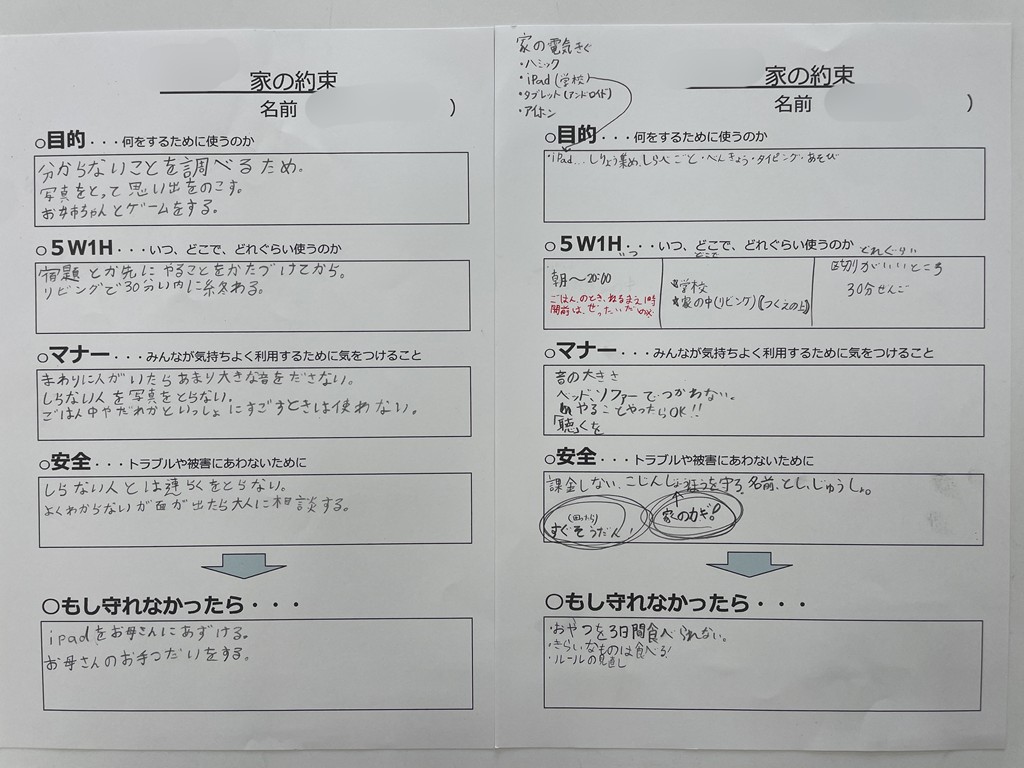 家の約束
名前 )
○目的・・・何をするために使うのか
分からないことを調べるため。
写真をとって思い出をのこす。
お姉ちゃんとゲームをする。
○5W1H・・・いつ、どこで、どれぐらい使うのか
宿題とか先にやることをかたづけてから。
リビングで30分い内に終わる。
○マナー・・・みんなが気持ちよく利用するために気をつけること
まわりに人がいたらあまり大きな音をださない。
しらない人を写真をとらない。
ごはん中やだれかといっしょにすごすときは使わない。
○安全・・・トラブルや被害にあわないために
しらない人とは連らくをとらない。
よくわからないが面が出たら大人に相談する。
○もし守れなかったら・・・
ipadをお母さんにあずける。
お母さんのお手つだいをする。
家の電気きぐ
・ハミック
・iPad(学校)
・タブレット(アンドロイド)
・アイホン
家の約束
名前 )
○目的・・・何をするために使うのか
・iPad...しりょう集め、しらべごと・べんきょう・タイピング・あそび
○5W1H・・・いつ、どこで、どれぐらい使うのか
いつ どこで どれぐらい
朝〜20:00
ごはん、のとき、ねるまえ1時
間前は、ぜったいだめ×
学校
家の中(リビング)《つくえの上》
区切りがいいところ
30分せんご
○マナー・・・みんなが気持ちよく利用するために気をつけること
音の大きさ
ベッド、ソファーでつかわない。
やることやったらOK!!
「聴」くを
○安全・・・トラブルや被害にあわないために
課金しない、こじんじょうほうを守る、名前、とし、じゅうしょ。
(困ったら)
すぐそうだん!
家のカギ!
○もし守れなかったら・・・
・おやつを3日間食べられない。
・きらいなものは食べる!
・ルールの見直し